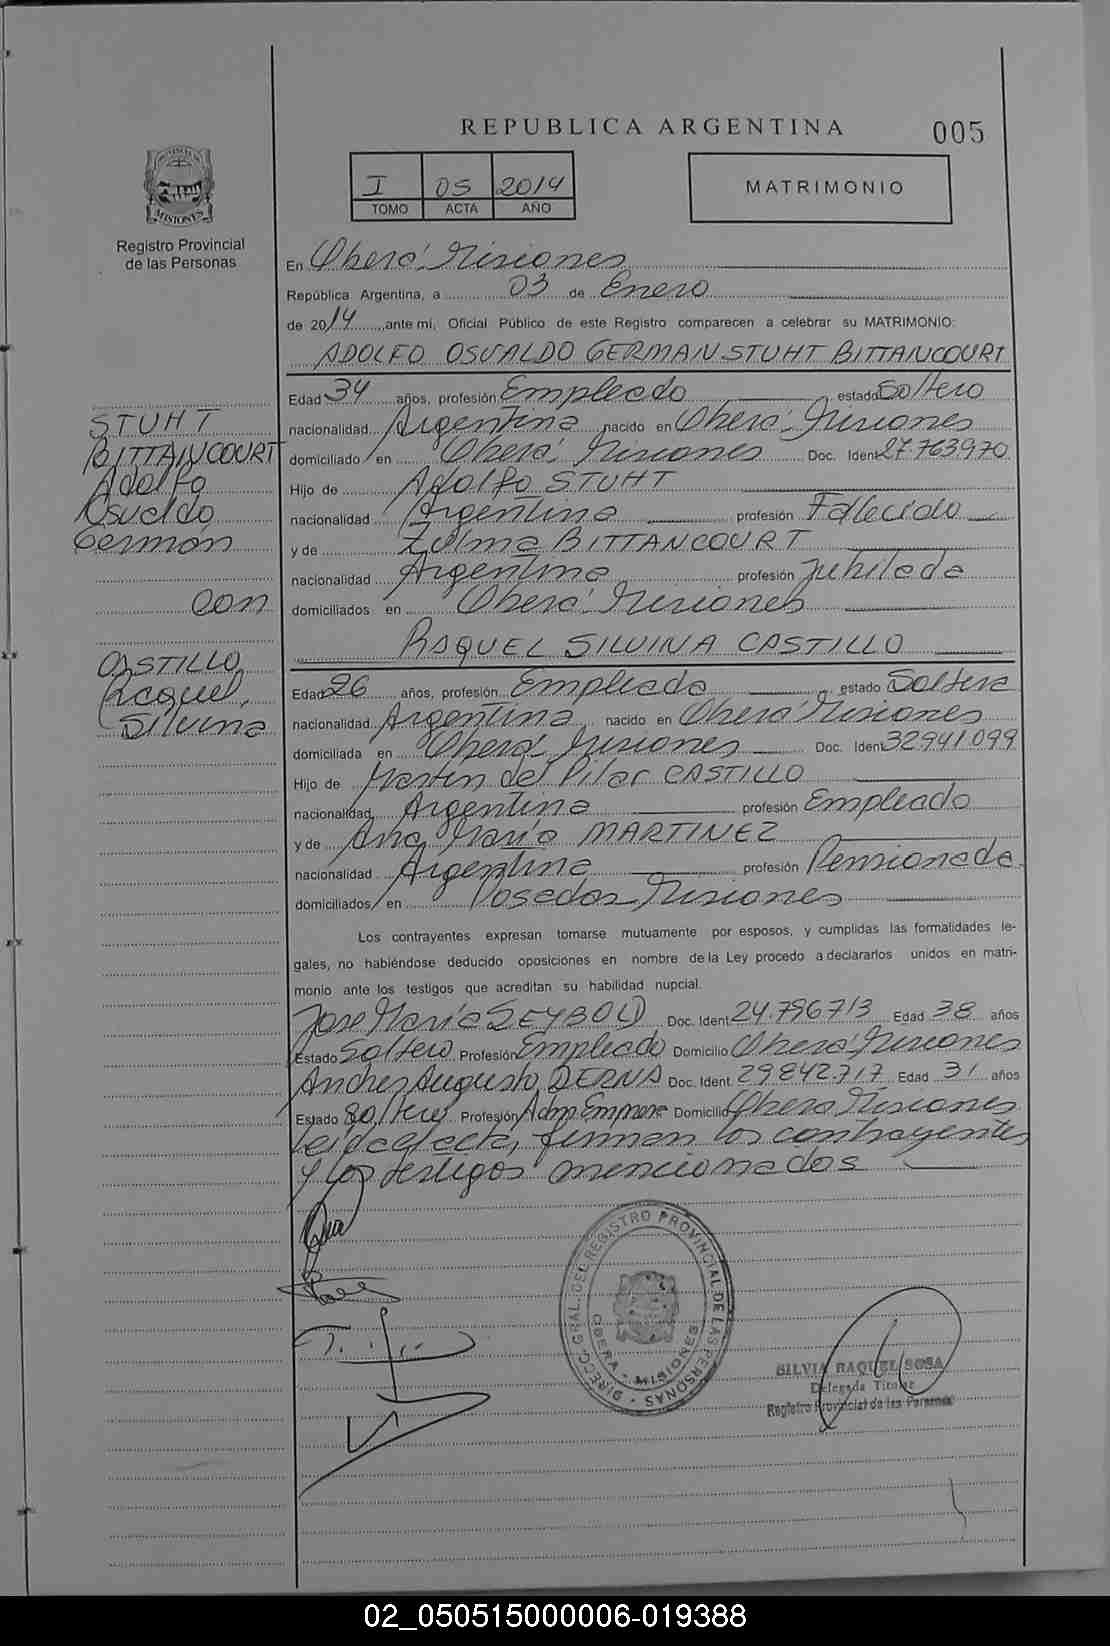 REPUBLICA ARGENTINA
005
I 05 2014
TOMO ACTA AÑO
MATRIMONIO
PROVINCIA DE
MISIONES
Registro Provincial
de las Personas
En Oberá, Misiones
República Argentina, a 03 de Enero
de 2014, ante mí, Oficial Público de este Registro comparecen a celebrar su MATRIMONIO:
ADOLFO OSVALDO GERMAN STUHT BITTANCOURT
Edad 34 años, profesión Empleado estado Soltero
nacionalidad Argentina nacido en Oberá, Misiones
domiciliado en Oberá, Misiones Doc. Ident 27.763970
Hijo de Adolfo STUHT
nacionalidad Argentina profesión Fallecido
y de Zulma BITTANCOURT
nacionalidad Argentina profesión Jubilada
domiciliados en Oberá, Misiones
STUHT
BITTANCOURT
Adolfo
Osvaldo
Germán
con
CASTILLO,
Raquel
Silvina
RAQUEL SILVINA CASTILLO
Edad 26 años, profesión Empleada estado Soltera
nacionalidad Argentina nacido en Oberá Misiones
domiciliada en Oberá, Misiones Doc. Ident 32941099
Hijo de Martin del Pilar CASTILLO
nacionalidad Argentina profesión Empleado
y de Ana María MARTINEZ
nacionalidad Argentina profesión Pensionada
domiciliados en Posadas, Misiones
Los contrayentes expresan tomarse mutuamente por esposos, y cumplidas las formalidades le-
gales, no habiéndose deducido oposiciones en nombre de la Ley procedo a declararlos unidos en matri-
monio ante los testigos que acreditan su habilidad nupcial.
Jose María SEYBOLD Doc. Ident 24.796713 Edad 38 años
Estado Soltero Profesión Empleado Domicilio Oberá, Misiones
Andres Augusto DERNA Doc. Ident 29842.717 Edad 31 años
Estado Soltero Profesión Adm Domicilio Oberá Misiones
leida el acta, firman los contrayentes
y los testigos mencionados
DIRECC. GRAL. DEL REGISTRO PROVINCIAL DE LAS PERSONAS
OBERA - MISIONES
SILVIA RAQUEL SOSA
Delegada Titular
Registro Provincial de las Personas
02_050515000006-019388